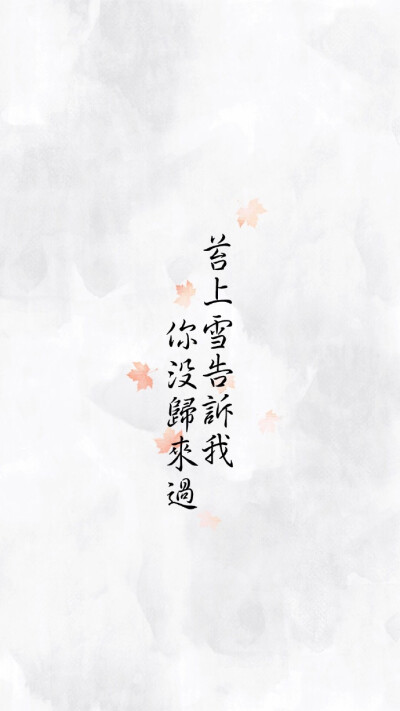 苔上雪告訴我
你没歸來過